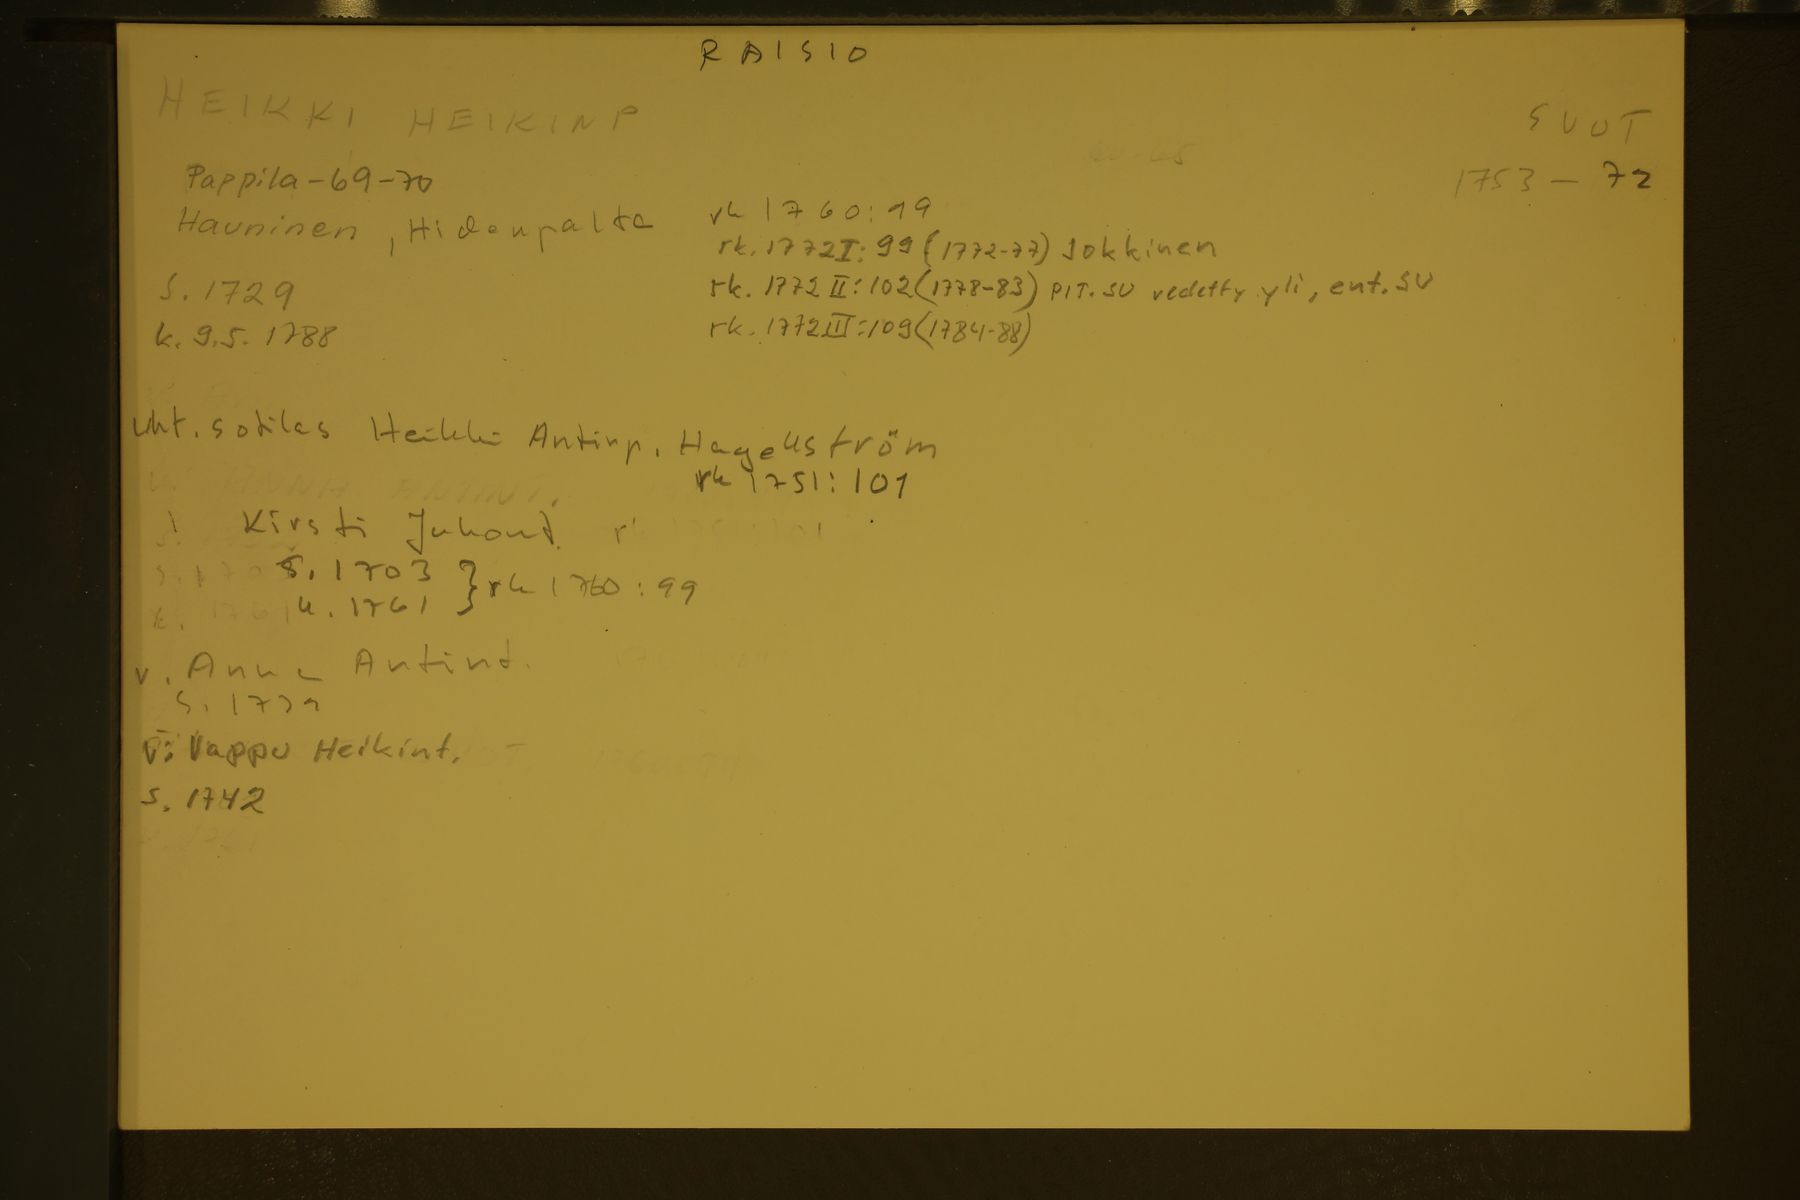 RAISIO
HEIKKI HEIKINP
SUUT
1753 - 72
Pappila - 69-70
Hauninen, Hidenpalta
rk 1760:99
rk. 1772 I: 99 (1772-77) Jokkinen
S. 1729
rk. 1772 II: 102 (1778-83) PIT. SU vedetty yli, ent. SU
k. 9.5. 1788
rk. 1772 III: 109 (1784-88)
vht. sotilas Heikki Antinp. Hagelström
rk 1751: 101
Kirsti Juhont.
S. 1703
k. 1761 } rk 1760: 99
v. Anna Antint.
v: Vappu Heikint.
s. 1742